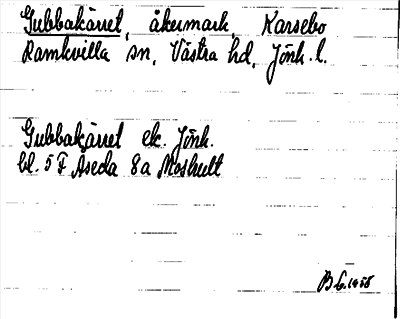 Gubbakärret, åkermark, Karsebo
Ramkvilla sn, Västra hd, Jönk. l.
Gubbakärret ek. Jönk.
bl. 5 F Åseda 8a Moshult